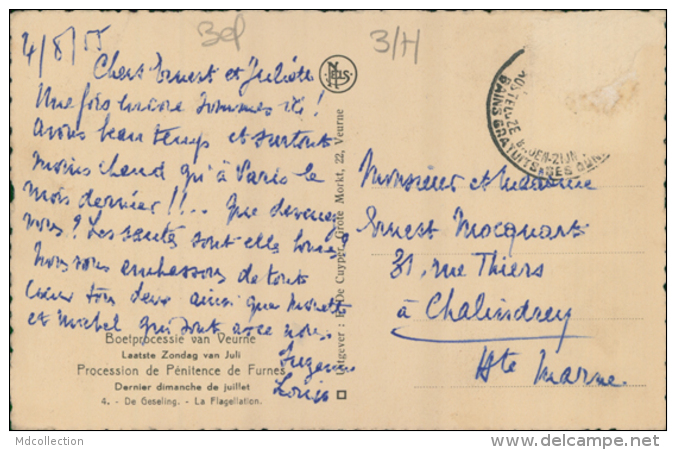 4/8/55
Bel
3/H
Chers Ernest et Juliette
Une fois encore sommes ici !
Avons beau temps et surtout
moins chaud qu'à Paris le
mois dernier !!... Que devenez
vous ? Les santés sont elles bonnes ?
Nous vous embrassons de tout
cœur tous deux ainsi que
et Michel qui sont avec nous.
Suzanne
Louis
NELS
Uitgever : De Cuyper, Grote Markt, 22, Veurne
BAINS GRATUITS DES
Monsieur et Madame
Ernest Mocquart
31, rue Thiers
à Chalindrey
Hte Marne.
Boetprocessie van Veurne
Laatste Zondag van Juli
Procession de Pénitence de Furnes
Dernier dimanche de juillet
4. - De Geseling. - La Flagellation.
Mdcollection
www.delcampe.net